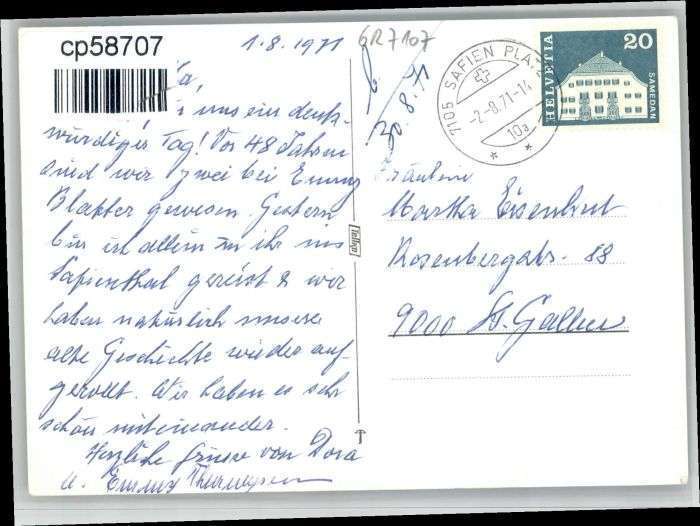 cp58707
1.8.1971
GR7107
uns ein denk-
würdiger Tag! Vor 48 Jahren
sind wir zwei bei Emmy
gewesen. Gestern
bin ich allein zu ihr ins
Safienthal gereist & wir
haben natürlich unsere
alte Geschichte wieder auf-
gerollt. Wir haben es sehr
schön miteinander.
Herzliche Grüsse von Dora
u. Emmy
8.71
7105 SAFIEN PLATZ
-2-8.71-14
10a
HELVETIA
20
SAMEDAN
Fräulein
Martha Eisenhut
Rosenbergstr. 88
9000 St. Gallen